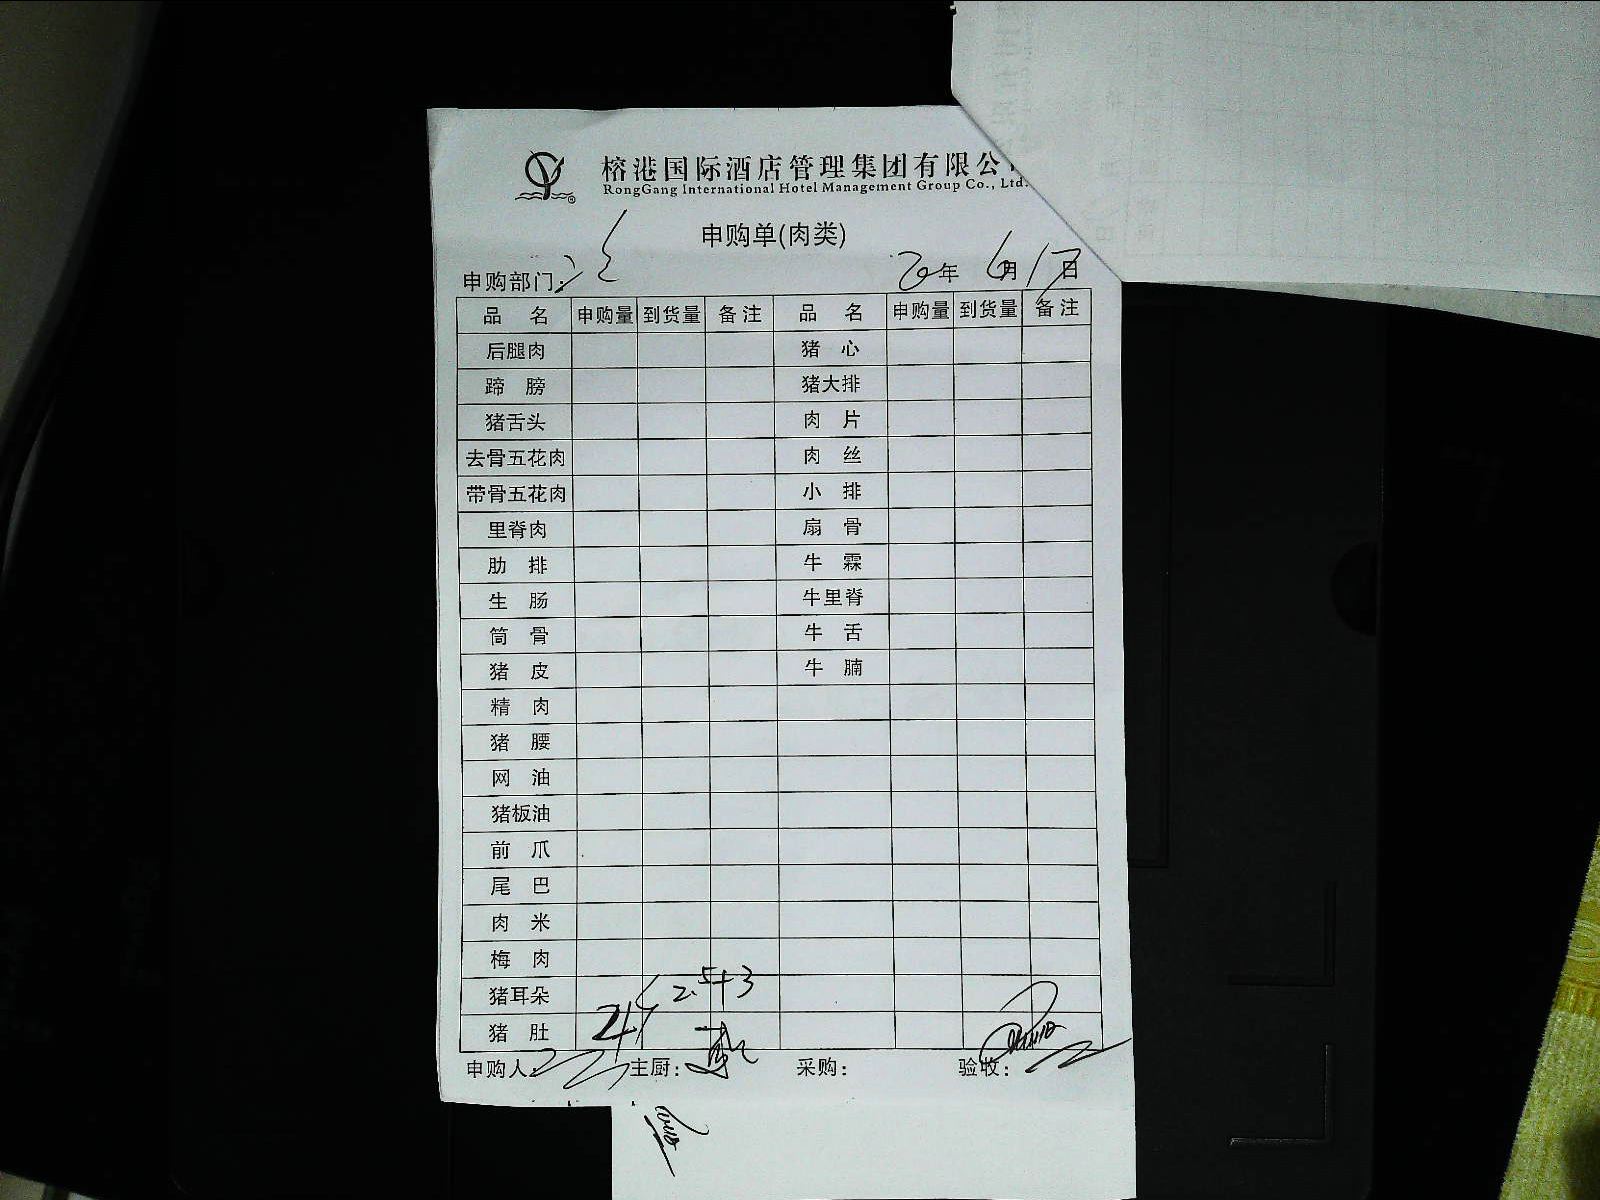 榕港国际酒店管理集团有限公
RongGang International Hotel Management Group Co., Ltd.
申购单(肉类)
申购部门: 20年 6月 17日
品 名 申购量 到货量 备注 品 名 申购量 到货量 备注
后腿肉 猪 心
蹄 膀 猪大排
猪舌头 肉 片
去骨五花肉 肉 丝
带骨五花肉 小 排
里脊肉 扇 骨
肋 排 牛 霖
生 肠 牛里脊
筒 骨 牛 舌
猪 皮 牛 腩
精 肉
猪 腰
网 油
猪板油
前 爪
尾 巴
肉 米
梅 肉
猪耳朵 2.5+3
猪 肚
申购人: 主厨: 采购: 验收: